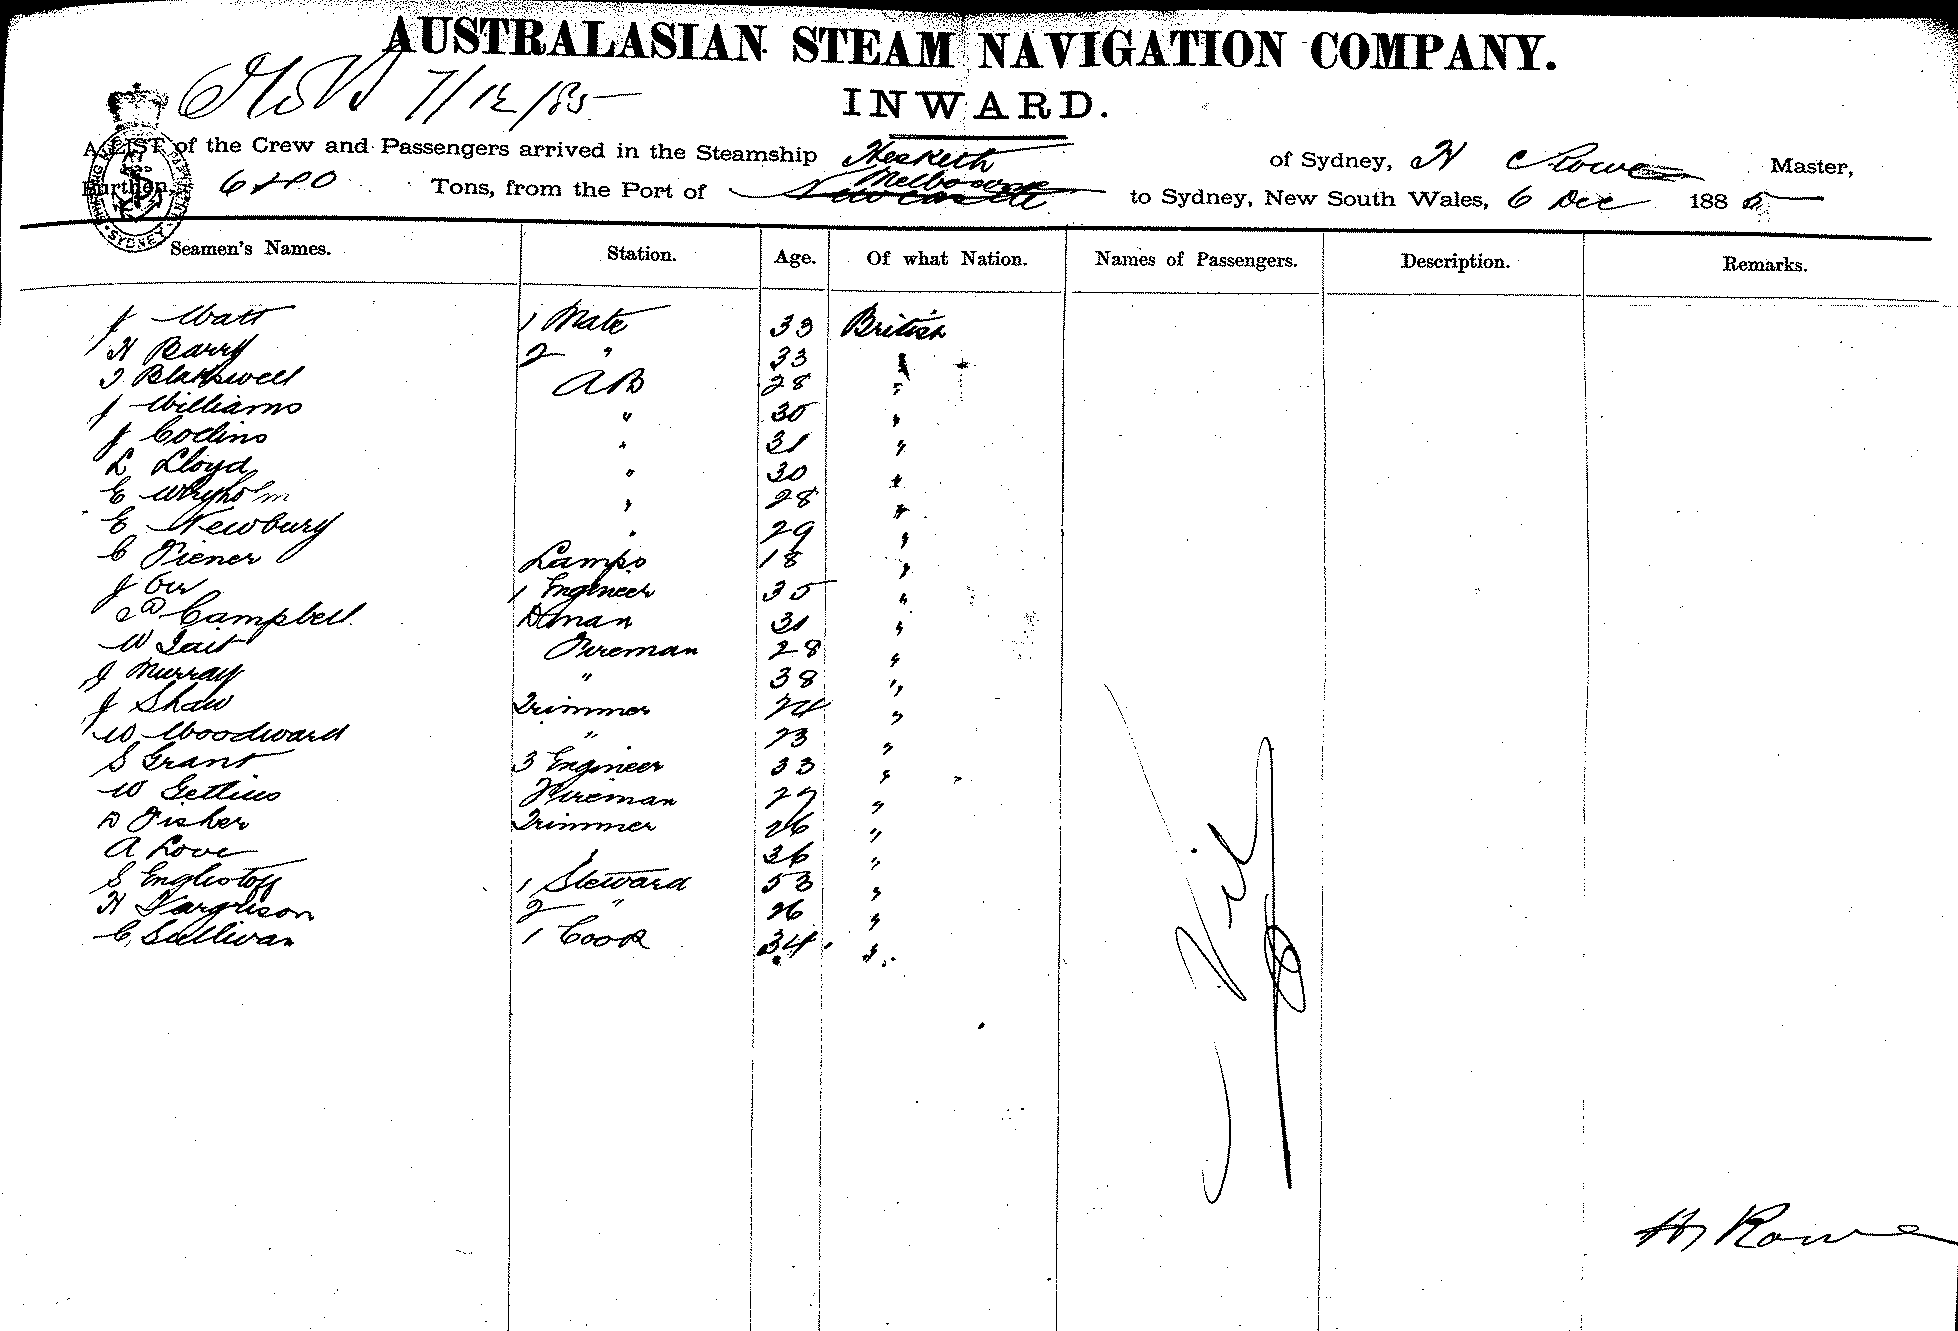 AUSTRALASIAN STEAM NAVIGATION COMPANY.
7/12/85
INWARD.
A LIST of the Crew and Passengers arrived in the Steamship Hesketh of Sydney, H Rowe Master,
Burthen, 640 Tons, from the Port of Newcastle Melbourne to Sydney, New South Wales, 6 Dec 1885
SYDNEY
Seamen's Names. Station. Age. Of what Nation. Names of Passengers. Description. Remarks.
J Watt 1 Mate 33 British
H Barry 2 " 33 "
J Blakwell AB 28 "
J Williams " 30 "
J Collins " 31 "
L Lloyd " 30 "
E " 28 "
E Newbury " 29 "
C Piener Lamps 18 "
J Orr 1 Engineer 35 "
D Campbell Dman 31 "
W Tait Fireman 28 "
J Murray " 38 "
J Shaw Trimmer 24 "
W Woodward " 23 "
S Grant 3 Engineer 33 "
W Gettins Fireman 27 "
D Fisher Trimmer 26 "
A Love " 36 "
S 1 Steward 53 "
H Farguson 2 " 26 "
C Sullivan 1 Cook 34 "
Nil
H Rowe